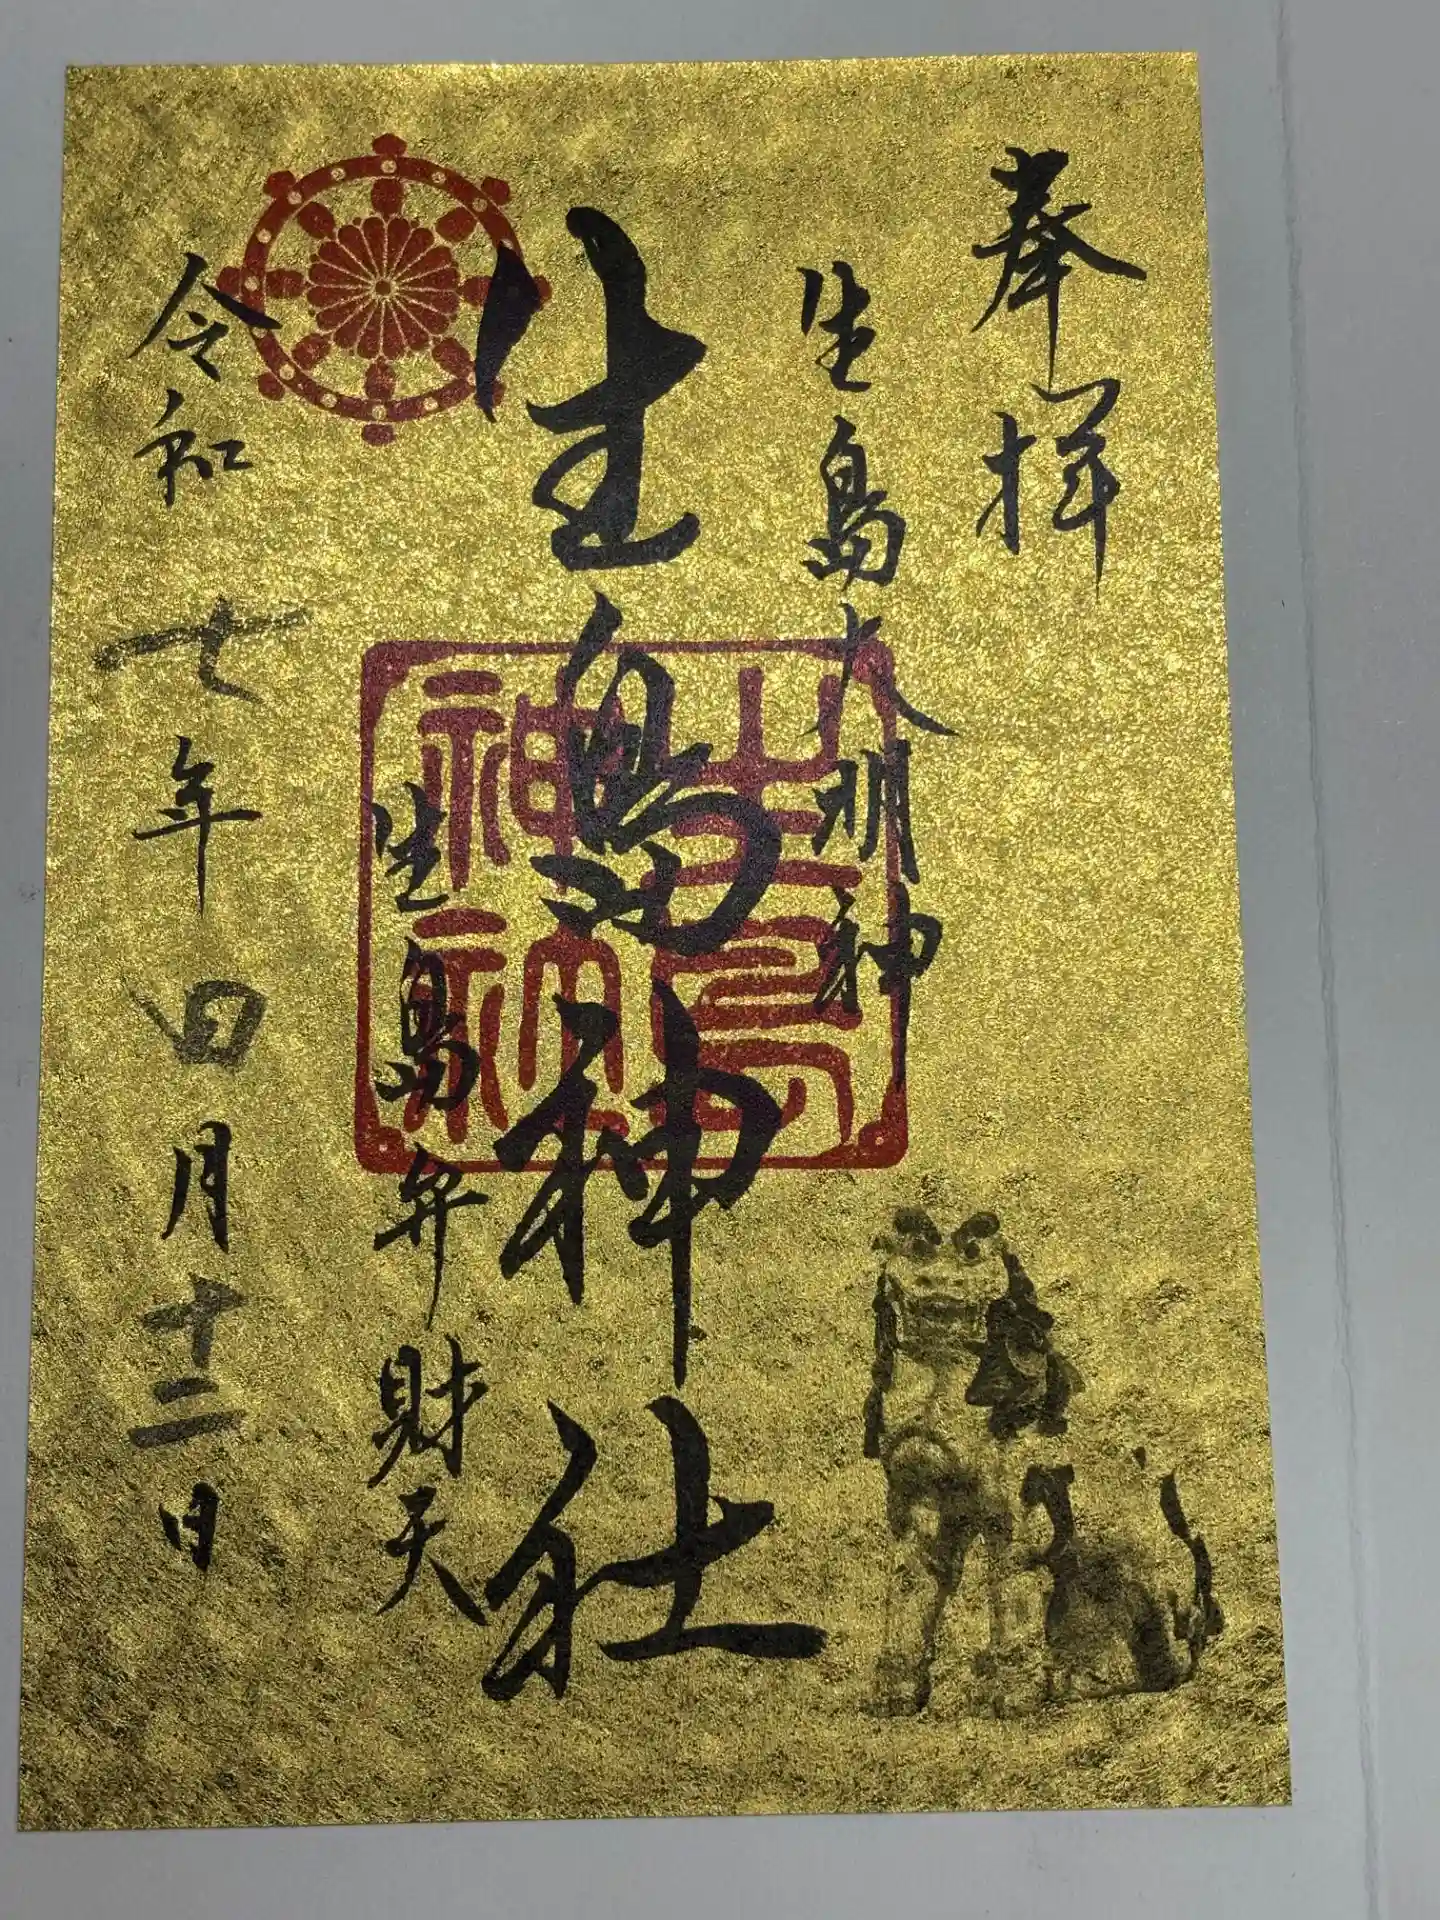 奉拝
生島大明神
生島神社
生島神社
生島弁財天
令和七年四月十二日